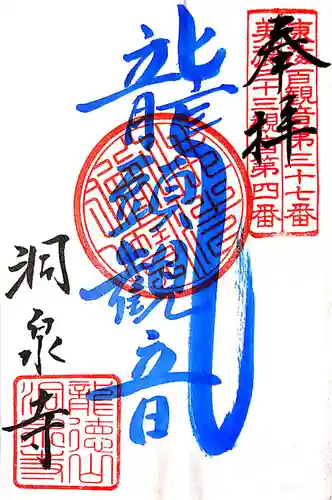 東海百観音第三十七番
美濃三十三観音第四番
奉拝
龍頭觀音
洞泉寺
龍徳山
洞泉寺